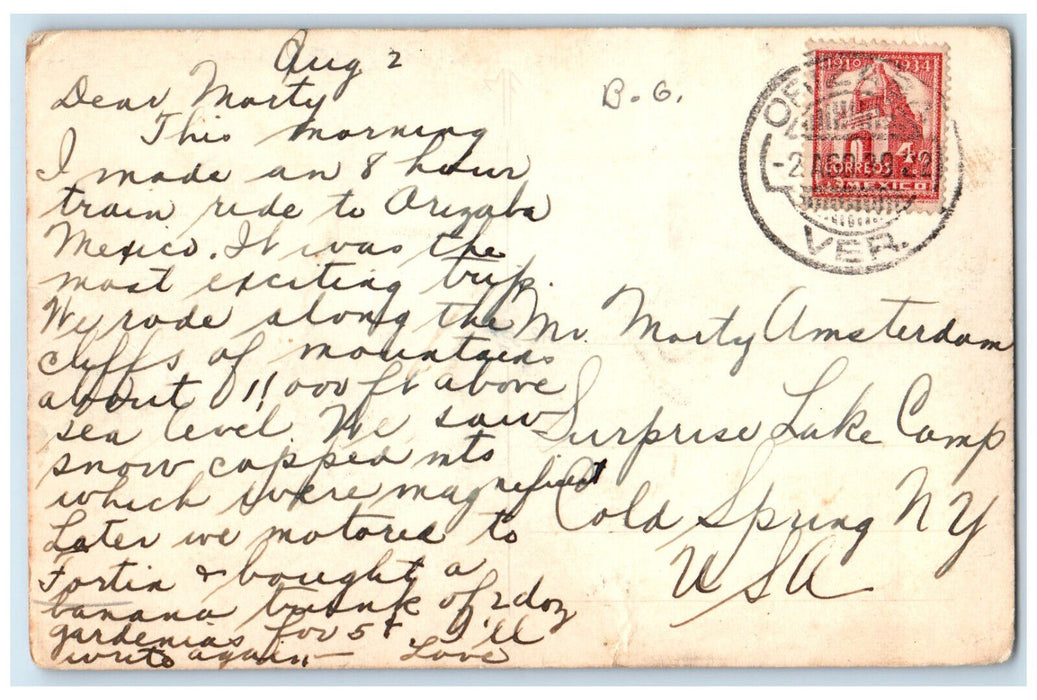 Aug 2
Dear Marty
This morning
I made an 8 hour
train ride to Orizaba
Mexico. It was the
most exciting trip.
We rode along the
cliffs of mountains
about 11,000 ft above
sea level. We saw
snow capped mts
which were magnificent
Later we motored to
Fortin & bought a
banana trunk of 2 doz
gardenias for 5¢ I'll
write again— Love
B. G.
1910 1934
4¢
CORREOS
MEXICO
ORIZABA
-2 AGO 39
VER.
Mr. Marty Amsterdam
Surprise Lake Camp
Cold Spring NY
USA